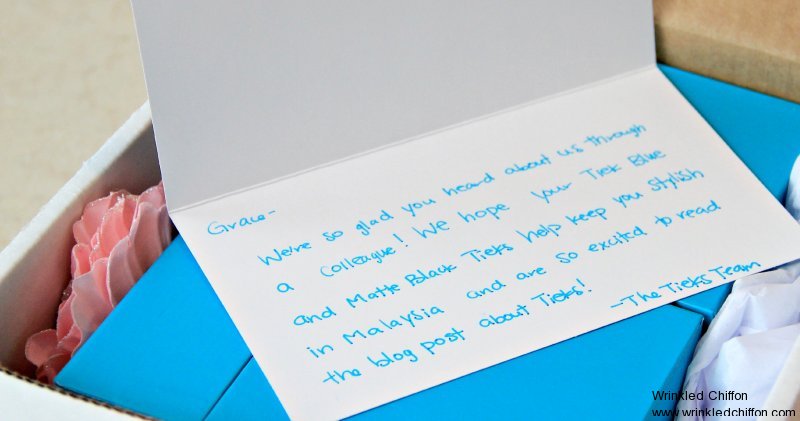 Grace-
We're so glad you heard about us through
a colleague! We hope your Tiek Blue
and Matte Black Tieks help keep you stylish
in Malaysia and are so excited to read
the blog post about Tieks!
-The Tieks Team
Wrinkled Chiffon
www.wrinkledchiffon.com